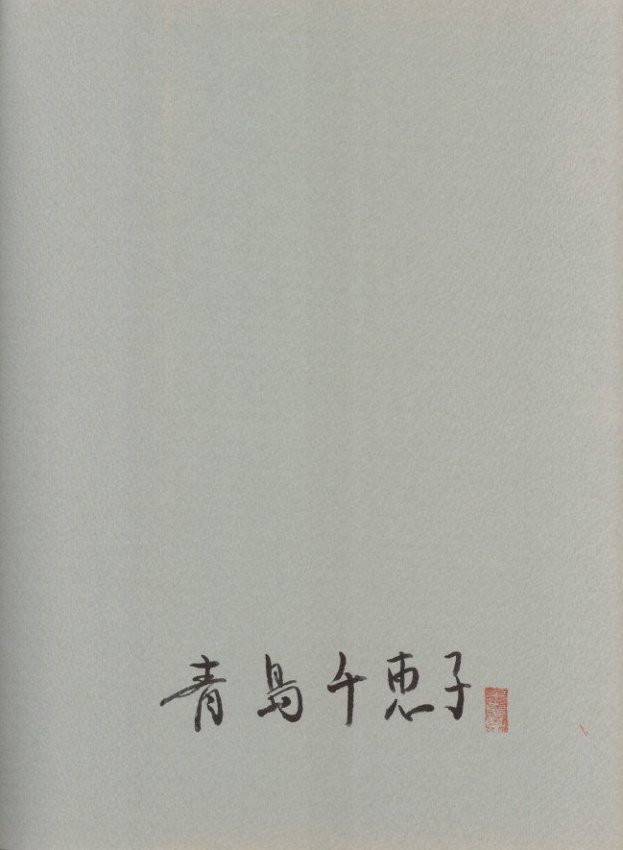 青島千恵子